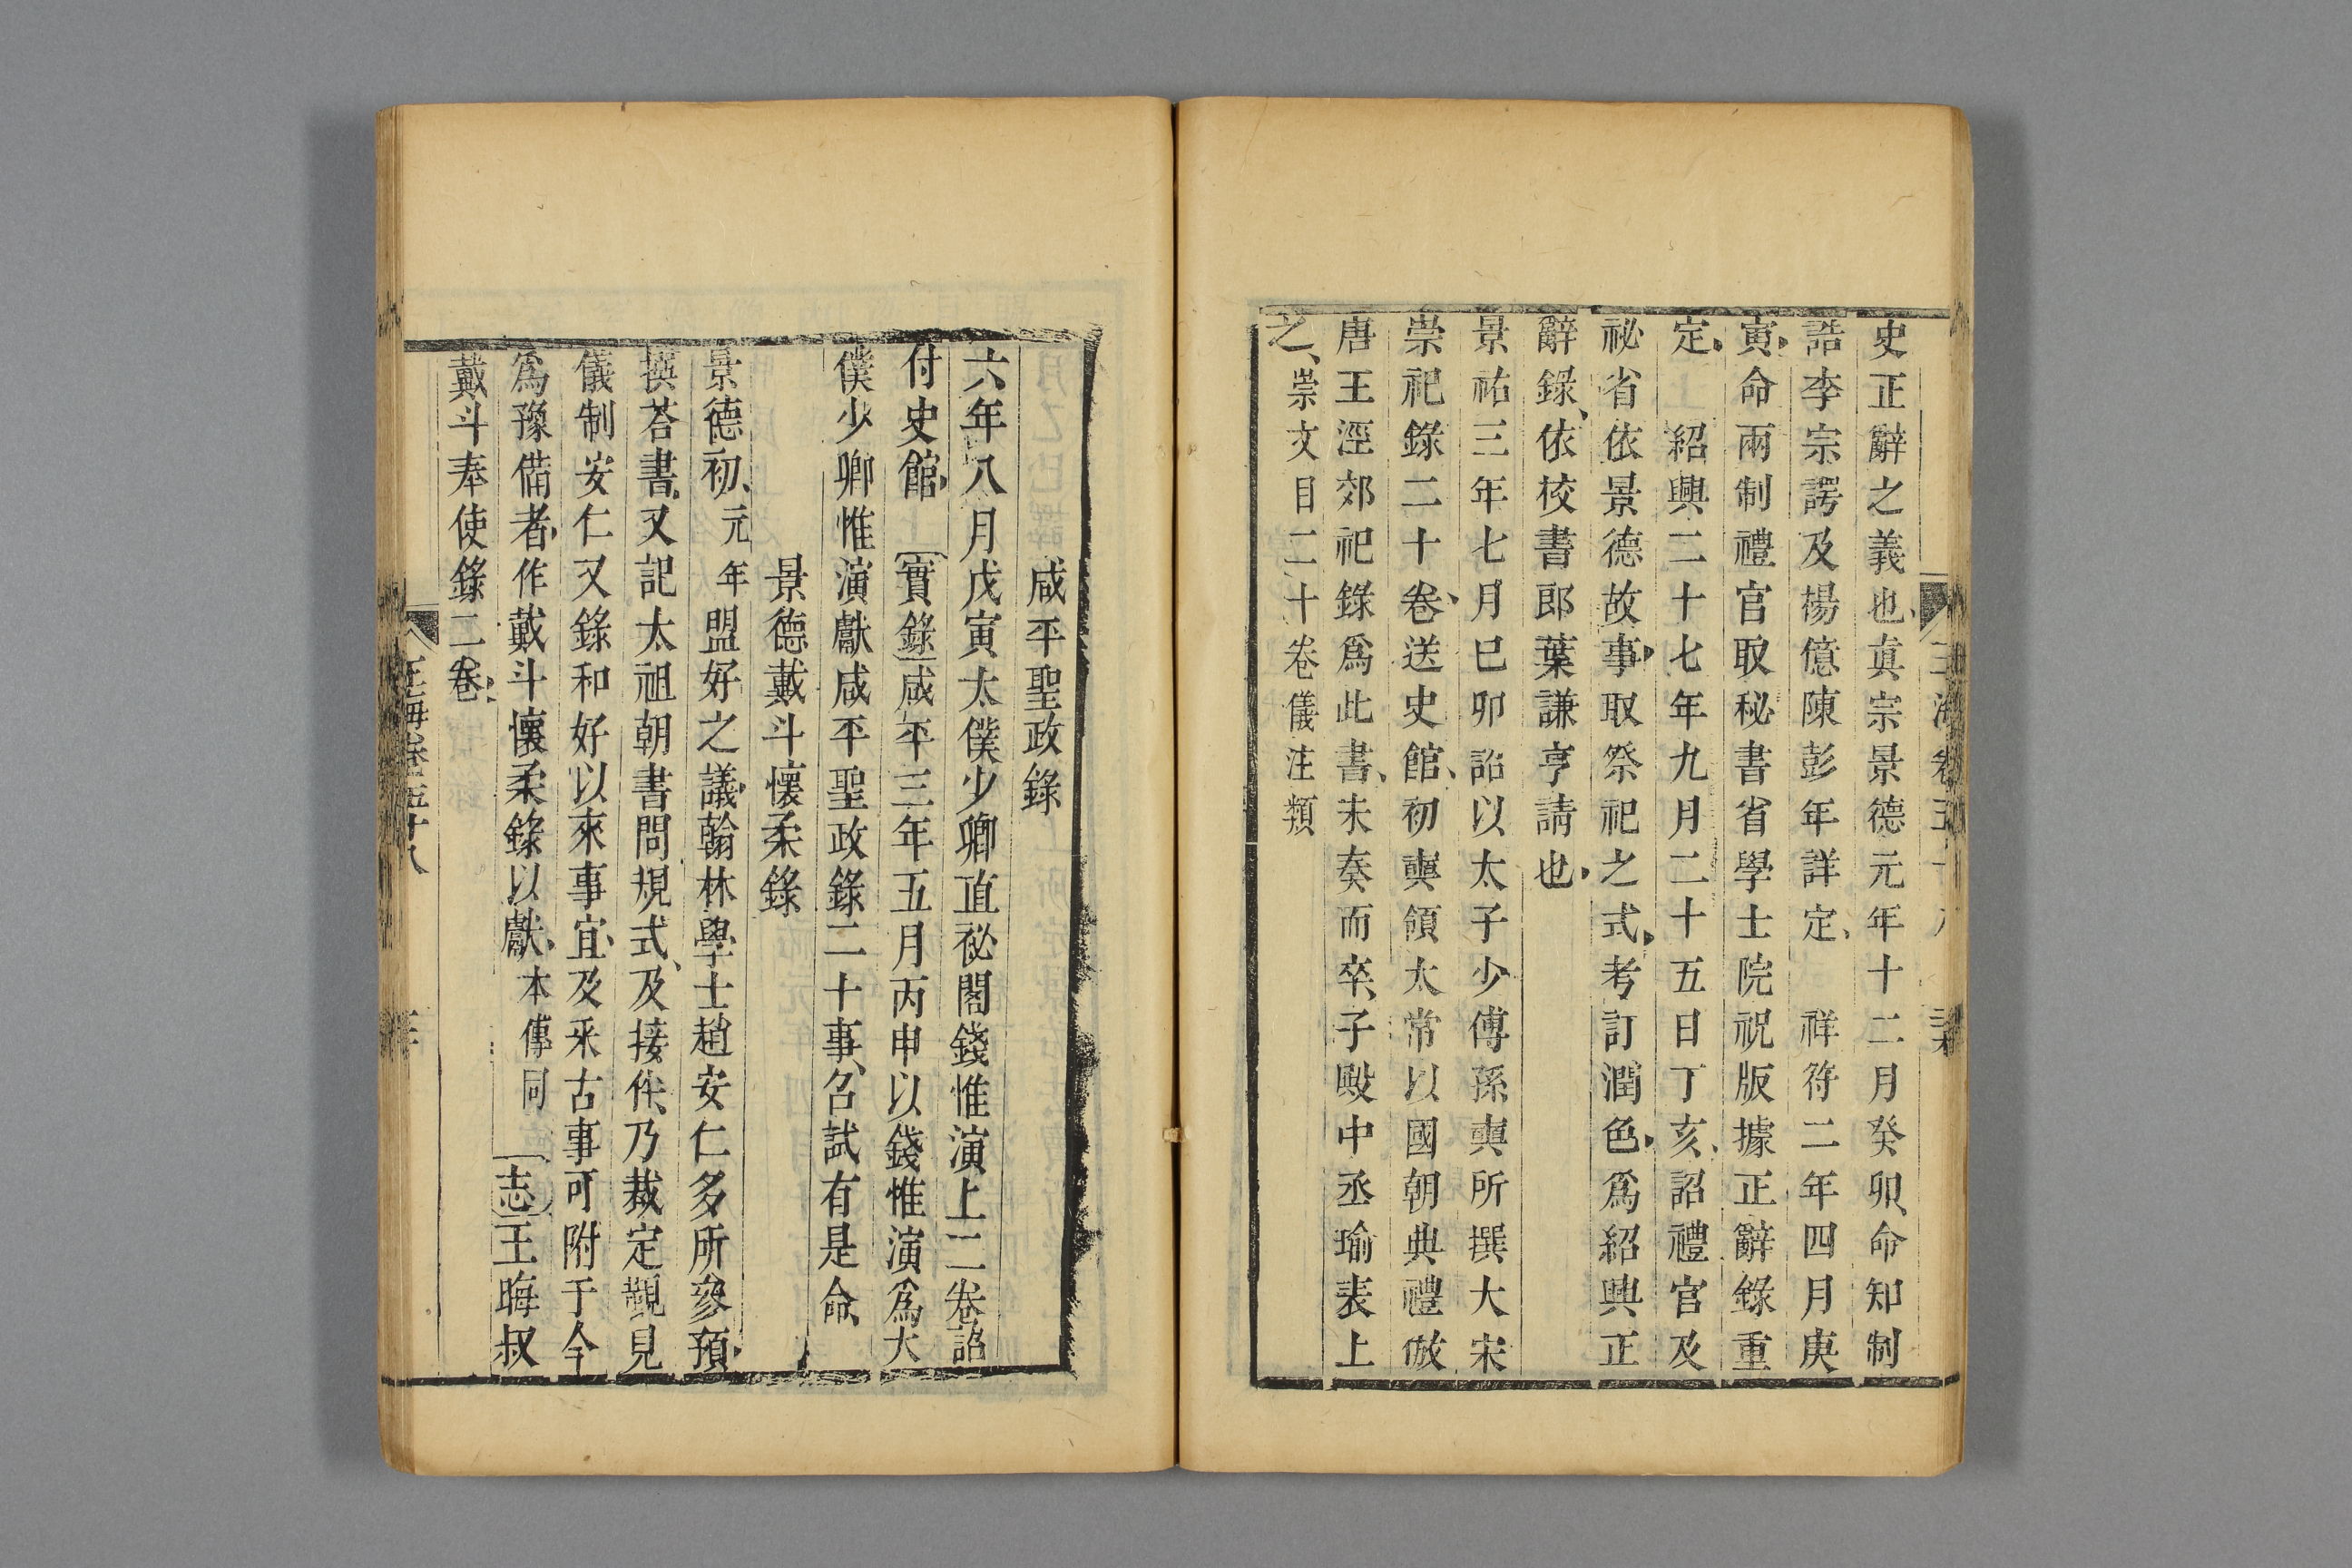 史正辭之義也真宗景德元年十二月癸卯命知制
誥李宗諤及楊億陳彭年詳定　祥符二年四月庚
寅命兩制禮官取秘書省學士院祝版據正辭錄重
定　紹興二十七年九月二十五日丁亥詔禮官及
祕省依景德故事取祭祀之式考訂潤色爲紹興正
辭錄依校書郎葉謙亨請也
景祐三年七月己卯詔以太子少傅孫奭所撰大宋
崇祀錄二十卷送史館初奭領太常以國朝典禮倣
唐王涇郊祀錄爲此書未奏而卒子殿中丞瑜表上
之崇文目二十卷儀注類
咸平聖政錄
六年八月戊寅太僕少卿直祕閣錢惟演上二卷詔
付史館　實錄咸平三年五月丙申以錢惟演爲大
僕少卿惟演獻咸平聖政錄二十事召試有是命
景德戴斗懷柔錄
景德初元年盟好之議翰林學士趙安仁多所參預
撰荅書又記太祖朝書問規式及接伴乃裁定覲見
儀制安仁又錄和好以來事宜及采古事可附于今
爲豫備者作戴斗懷柔錄以獻本傳同　志王晦叔
戴斗奉使錄二卷
玉海卷五十八